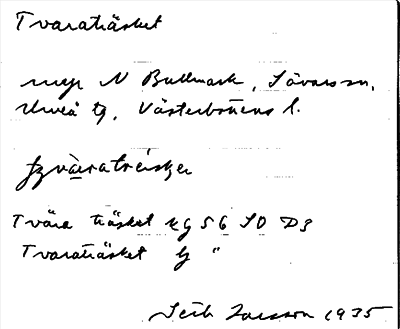 Tvaraträsket
N Bullmark, Sävar sn,
Umeå tg, Västerbottens l.
Tvära träsket kg 56 SO D3
Tvaraträsket tg "
Seth Larsson 1935